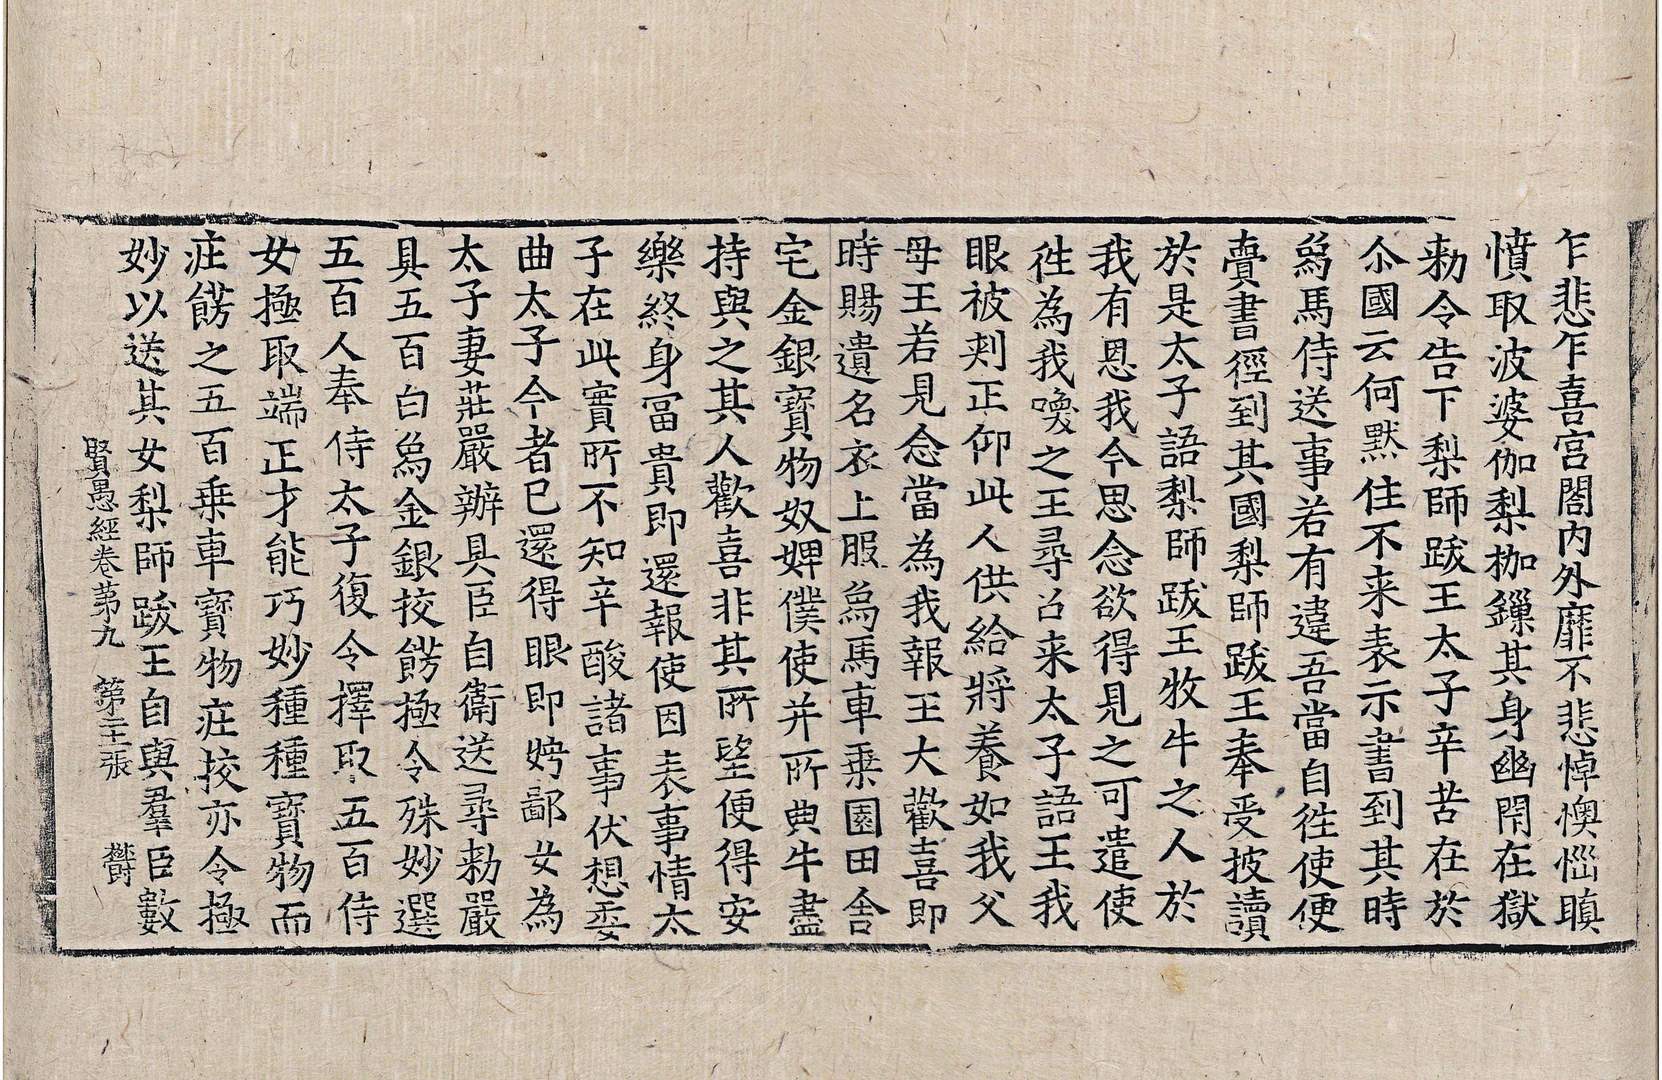 乍悲乍喜宮閤內外靡不悲悼懊惱瞋
憤取波婆伽梨枷鏁其身幽閇在獄
勑令告下梨師跋王太子辛苦在於
尒國云何默住不来表示書到其時
爲馬侍送事若有違吾當自徃使便
賷書徑到其國梨師跋王奉受披讀
於是太子語梨師跋王牧牛之人於
我有恩我今思念欲得見之可遣使
徃為我喚之王尋召来太子語王我
眼被刾正仰此人供給將養如我父
母王若見念當為我報王大歡喜即
時賜遺名衣上服爲馬車乗園田舍
宅金銀寶物奴婢僕使并所典牛盡
持與之其人歡喜非其所望便得安
樂終身冨貴即還報使因表事情太
子在此實所不知辛酸諸事伏想委
曲太子今者已還得眼即娉鄙女為
太子妻莊嚴辦具臣自衛送尋勑嚴
具五百白爲金銀挍餝極令殊妙選
五百人奉侍太子復令擇取五百侍
女極取端正才能巧妙種種寶物而
莊餝之五百乗車寶物莊挍亦令極
妙以送其女梨師跋王自與羣臣數
賢愚經卷苐九 第二十張 欝